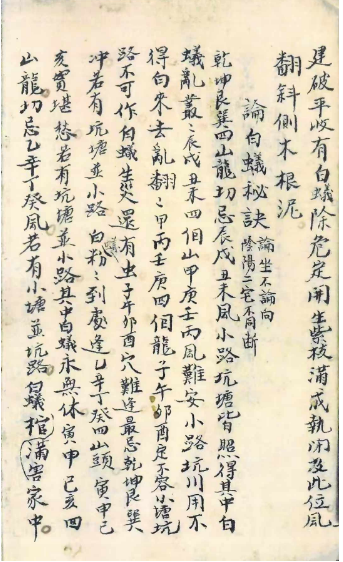 建破平收有白蟻除危定開生紫枝滿成執闭益此位凨
翻斜側木根泥
論白蟻秘訣 論坐不論向 陰陽二宅不同斷
乾坤艮巽四山龍切忌辰戌丑未凨小路坑塘皆照得其中白
蟻亂叢〻辰戌丑未四個山甲庚壬丙凨難安小路坑川用不
得白來去亂翻〻甲丙壬庚四個龍子午卯酉定不容小塘坑
路不可作白蟻生災還有虫子午卯酉穴難逢最忌乾坤艮巽
冲若有坑塘並小路白粉〻到處逢乙辛丁癸四山頭寅申巳
亥實堪愁若有坑塘並小路其中白蟻永無休寅申巳亥四
山龍切忌乙辛丁癸凨若有小塘並坑路白蟻棺滿害家中